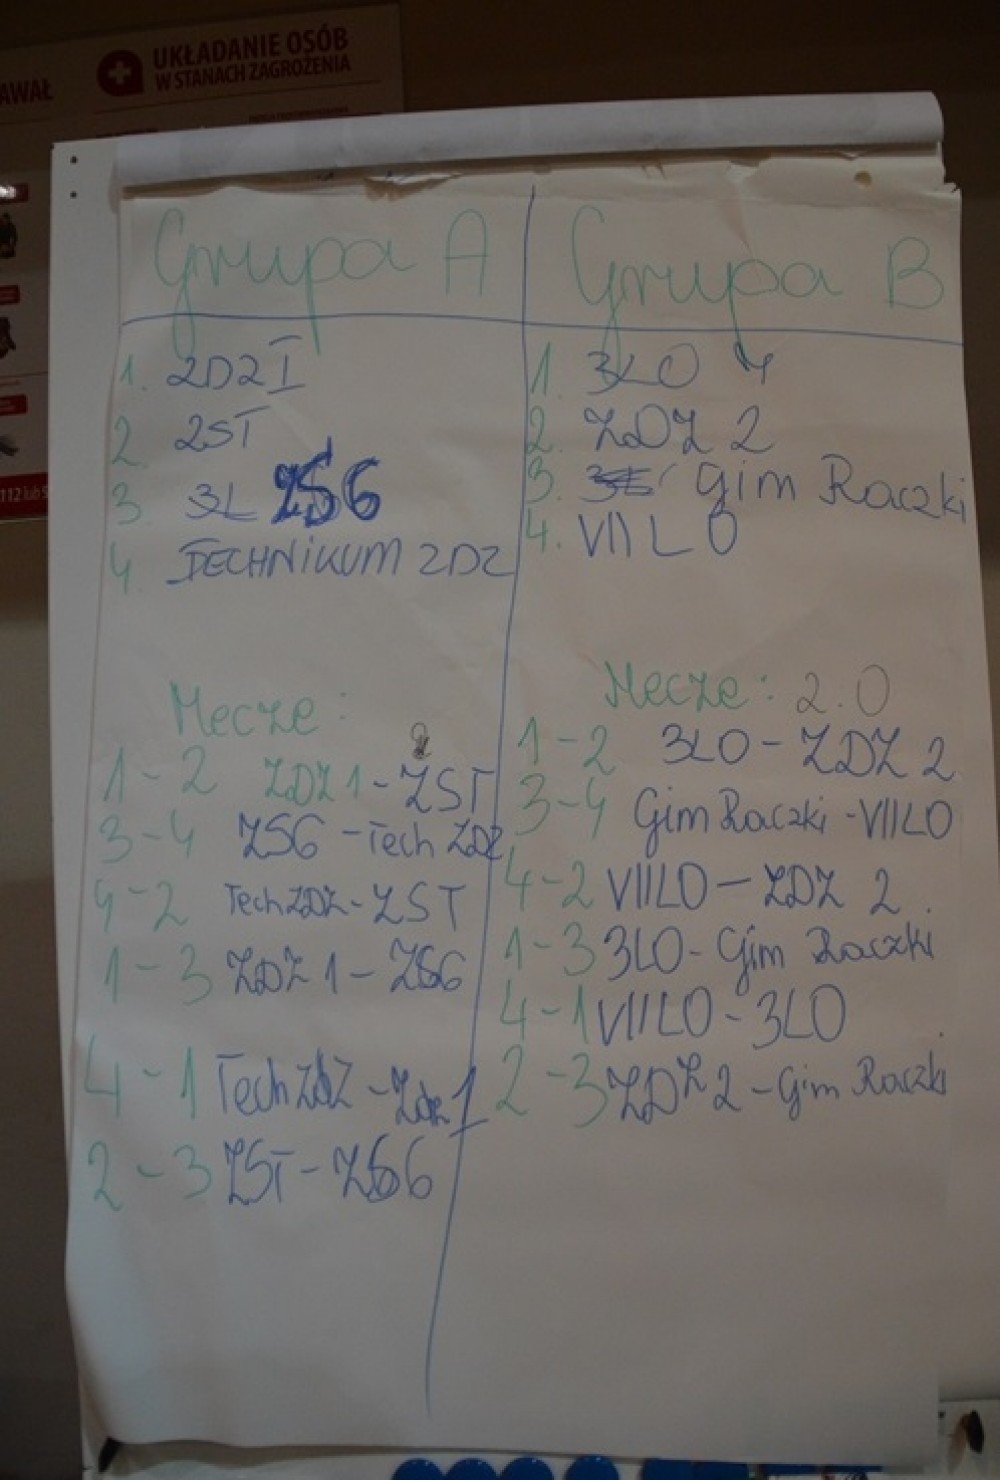 AWAŁ
UKŁADANIE OSÓB
W STANACH ZAGROŻENIA
112 lub 9
Grupa A
1. ZDZ I
2. ZST
3. 3L ZS6
4. TECHNIKUM ZDZ
Mecze:
1-2 ZDZ 1 - ZST
3-4 ZS6 - Tech ZDZ
4-2 Tech ZDZ - ZST
1-3 ZDZ 1 - ZS6
4-1 Tech ZDZ - Zdz 1
2-3 ZST - ZS6
Grupa B
1. 3LO 4
2. ZDZ 2
3. Gim Raczki
4. VII LO
Mecze: 2.0
1-2 3LO - ZDZ 2
3-4 Gim Raczki - VIILO
4-2 VIILO - ZDZ 2
1-3 3LO - Gim Raczki
4-1 VIILO - 3LO
2-3 ZDZ 2 - Gim Raczki